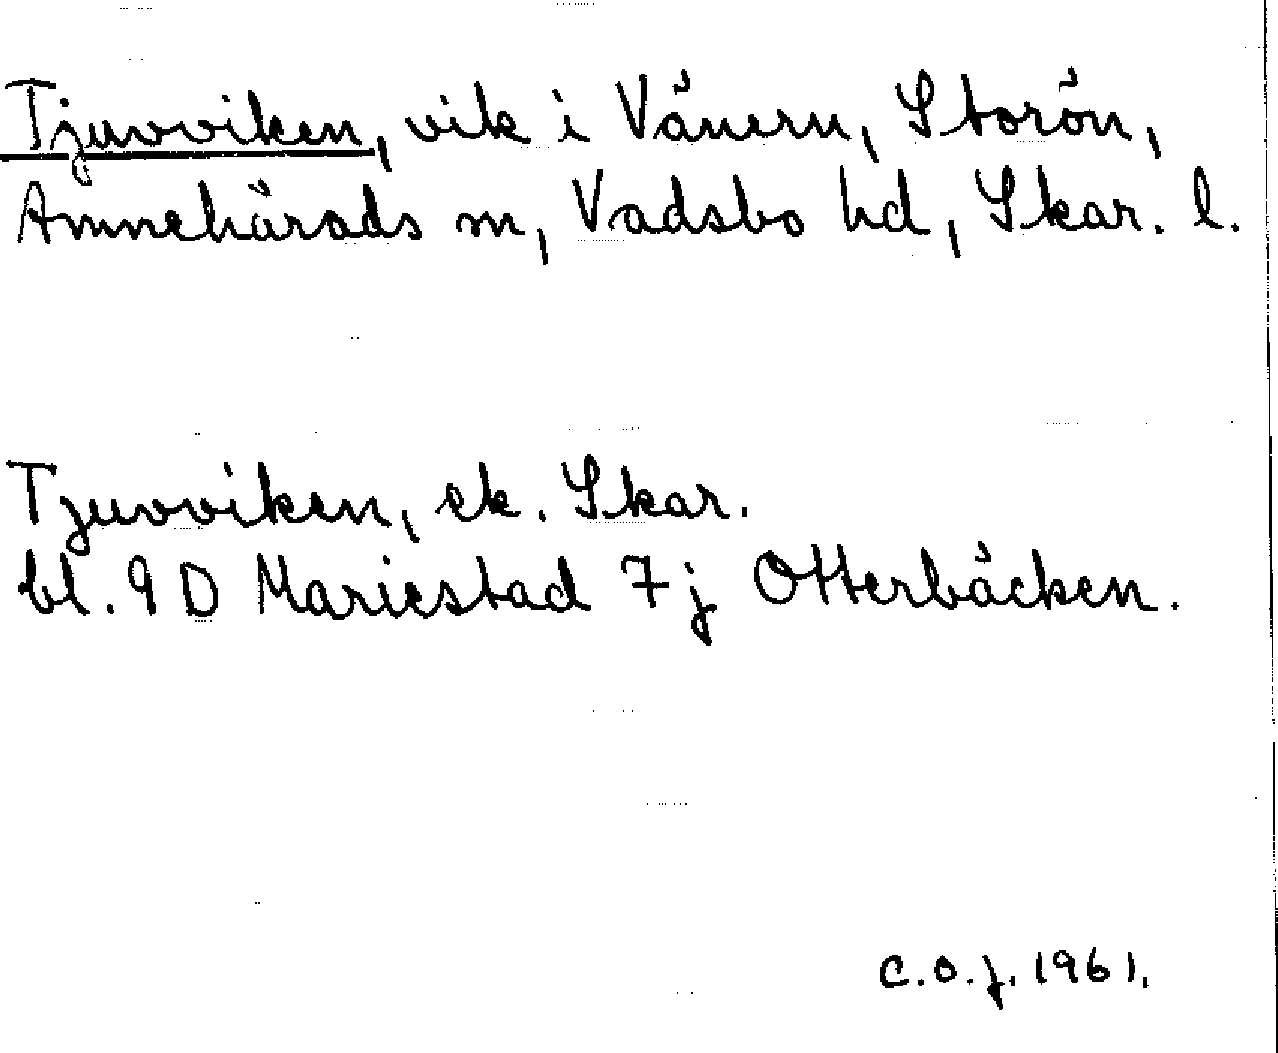 Tjuvviken, vik i Vänern, Storön,
Amnehärads sn, Vadsbo hd, Skar. l.
Tjuvviken, ek. Skar.
bl. 9 D Mariestad 7 j Otterbäcken.
C.O.J. 1961.